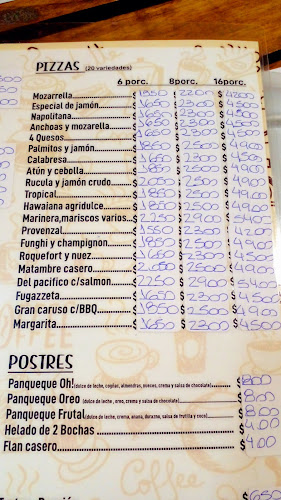 PIZZAS (20 variedades)
6 porc. 8porc. 16porc.
Mozarrella $1550 $2200 $4200
Especial de jamón $1650 $2300 $4500
Napolitana $1650 $2300 $4500
Anchoas y mozarella $1650 $2300 $4500
4 Quesos $1650 $2300 $4500
Palmitos y jamón $1850 $2500 $4900
Calabresa $1650 $2300 $4500
Atún y cebolla $1850 $2500 $4900
Rucula y jamón crudo $2000 $2500 $4900
Tropical $1850 $2500 $4900
Hawaiana agridulce $1850 $2500 $4900
Marinera,mariscos varios $2250 $2900 $5400
Provenzal $1550 $2300 $4200
Funghi y champignon $1850 $2500 $4900
Roquefort y nuez $1650 $2300 $4500
Matambre casero $2050 $2500 $4900
Del pacifico c/salmon $2250 $2900 $5400
Fugazzeta $1650 $2300 $4500
Gran caruso c/BBQ $1850 $2500 $4900
Margarita $1650 $2300 $4500
POSTRES
Panqueque Oh! (dulce de leche, copitas, almendras, nueces, crema y salsa de chocolate) $800
Panqueque Oreo (dulce de leche, oreo, crema y salsa de chocolate) $800
Panqueque Frutal (dulce de leche, crema, anana, durazno, salsa de frutilla y coco) $800
Helado de 2 Bochas $400
Flan casero $400
$650